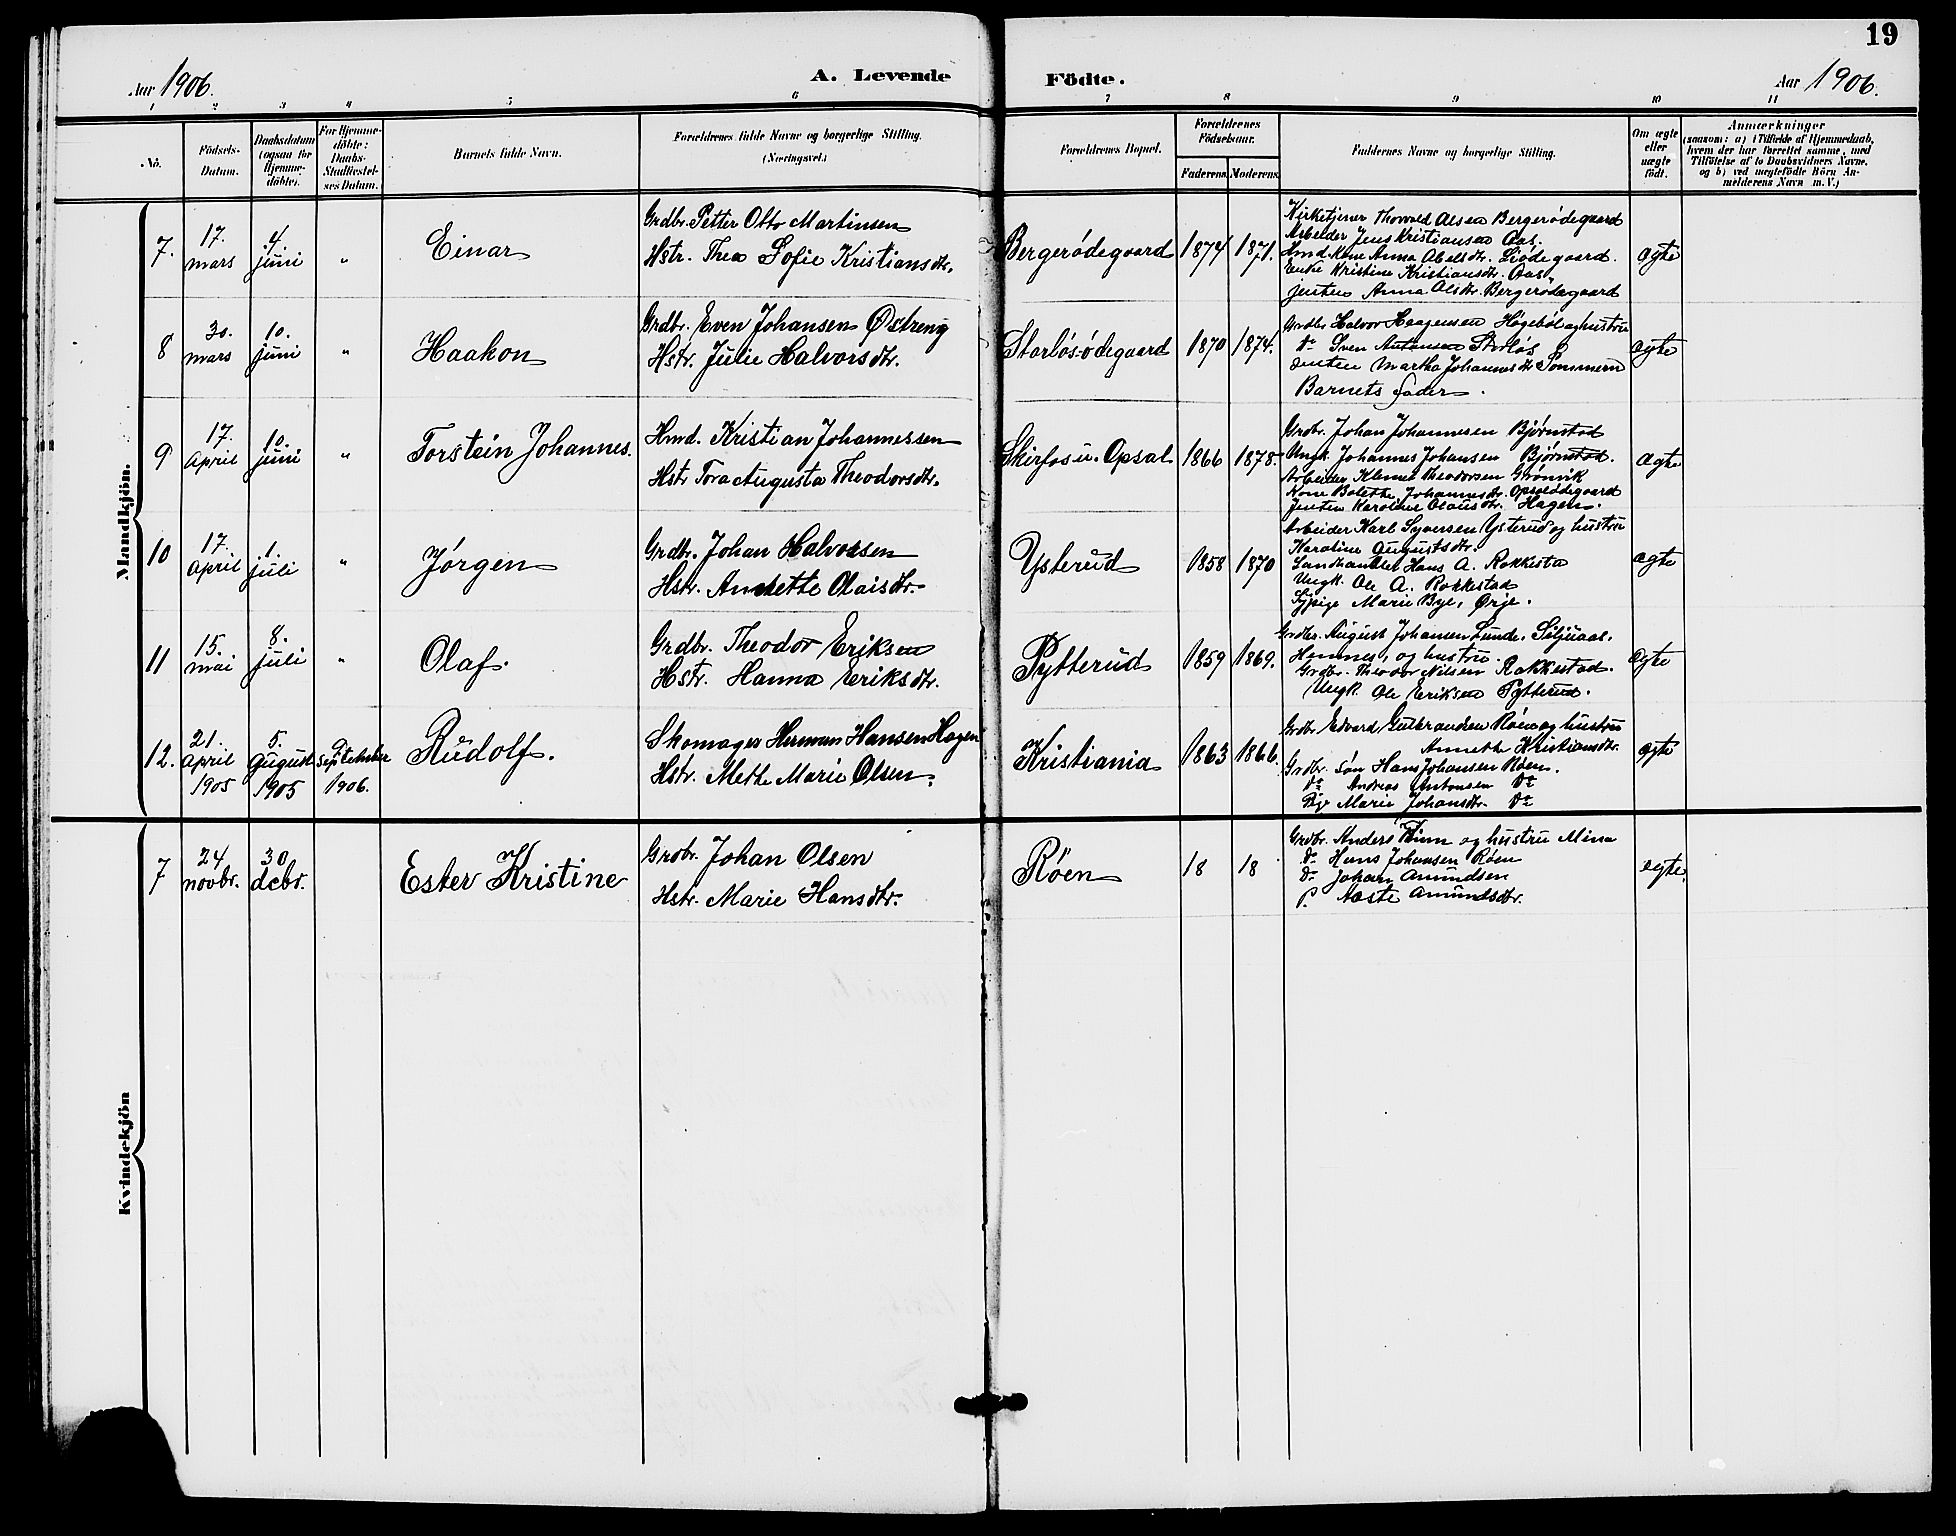 19
Aar 1906.
A. Levende Födte.
Aar 1906.
1 2 3 4 5 6 7 8 9 10 11
No.
Födsels-
Datum.
Daabsdatum
(ogsaa for
Hjemme-
döbte).
For Hjemme-
döbte:
Daabs-
Stadfæstel-
ses Datum.
Barnets fulde Navn.
Forældrenes fulde Navne og borgerlige Stilling.
(Næringsvei.)
Forældrenes Bopæl.
Forældrenes
Födselsaar.
Faderens.
Moderens.
Faddernes Navne og borgerlige Stilling.
Om ægte
eller
uægte
födt.
Anmærkninger
(saasom: a) i Tilfælde af Hjemmedaab,
hvem der har forrettet samme, med
Tilföielse af to Daabsvidners Navne,
og b) ved uægtefödte Börn An-
melderens Navn m. V.)
Mandkjön.
7.
17.
mars
4.
juni
"
Einar
Grdbr. Petter Otto Martinsen
Hstr. Thea Sofie Kristiansdtr.
Bergerødegaard
1874
1871.
Kirketjener Thorvald Olsen Bergerødegaard
Arbeider Jens Kristiansen Aas.
Hmd. Kone Anna Abelsdtr. Liødegaard.
Enke Kristine Kristiansdtr. Aas
jenten Anna Olsdtr. Bergerødegaard
ægte
8
30.
mars
10.
juni
"
Haakon
Grdbr. Even Johansen Østreng
Hstr. Julie Halvorsdtr.
Storløs-ødegaard
1870
1874.
Grdbr. Halvor Haagensen Høgebøl og hustru
do Sven Antonsen Storløs
Jenten Martha Johannesdtr Sommern
Barnets fader.
ægte
9
17.
April
10.
juni
"
Torstein Johannes.
Hmd. Kristian Johannessen
Hstr Tora Augusta Theodorsdtr.
Skirfos u. Opsal
1866
1878.
Grdbr. Johan Johannesen Bjørnstad
Ungk. Johannes Johansen Bjørnstad.
Arbeider Klemet Theodorsen Grønvik
Kone Bolethe Johannesdtr. Opsalødegaard
Jenten Karoline Olausdtr. Hagen.
Ægte
10
17.
April
1.
juli
"
Jørgen
Grdbr. Johan Halvorsen
Hstr. Annette Olaisdtr.
Ysterud
1858
1870
Arbeider Karl Syversen Ysterud og hustru
Karoline Augustsdtr.
Landhandler Hans A. Rakkestad
Ungk. Ole A. Rakkestad
Sypige Marie Bye, Ørje.
ægte
11
15.
mai
8.
juli
"
Olaf.
Grdbr. Theodor Eriksen
Hstr. Hanna Eriksdtr.
Pytterud
1859
1869.
Grdbr. August Johansen Lunde.
Hemnes, og hustru
Grdbr. Theodor Nilsen Rakkestad.
Ungk. Ole Eriksen Pytterud.
Ægte
12.
21.
April
1905
5.
August
1905
9
September
1906.
Rudolf.
Skomager Herman Hansen Hagen
Hstr. Methe Marie Olsen.
Kristiania
1863
1866.
Grdbr Edvard Gulbrandsen Røen og hustru
Annethe Kristiansdtr.
Grdbr. Søn Hans Johansen Røen.
do Andreas Antonsen do
Pige Marie Johansdtr. do
ægte
Kvindekjön
7
24
novbr.
30
dcbr.
Ester Kristine
Grdbr. Johan Olsen
Hstr. Marie Hansdtr.
Røen
18
18
Grdbr. Anders Tømm og hustru Mina
do Hans Johansen Røen
do Johan Amundsen
P. Næste Amundsdtr.
ægte.